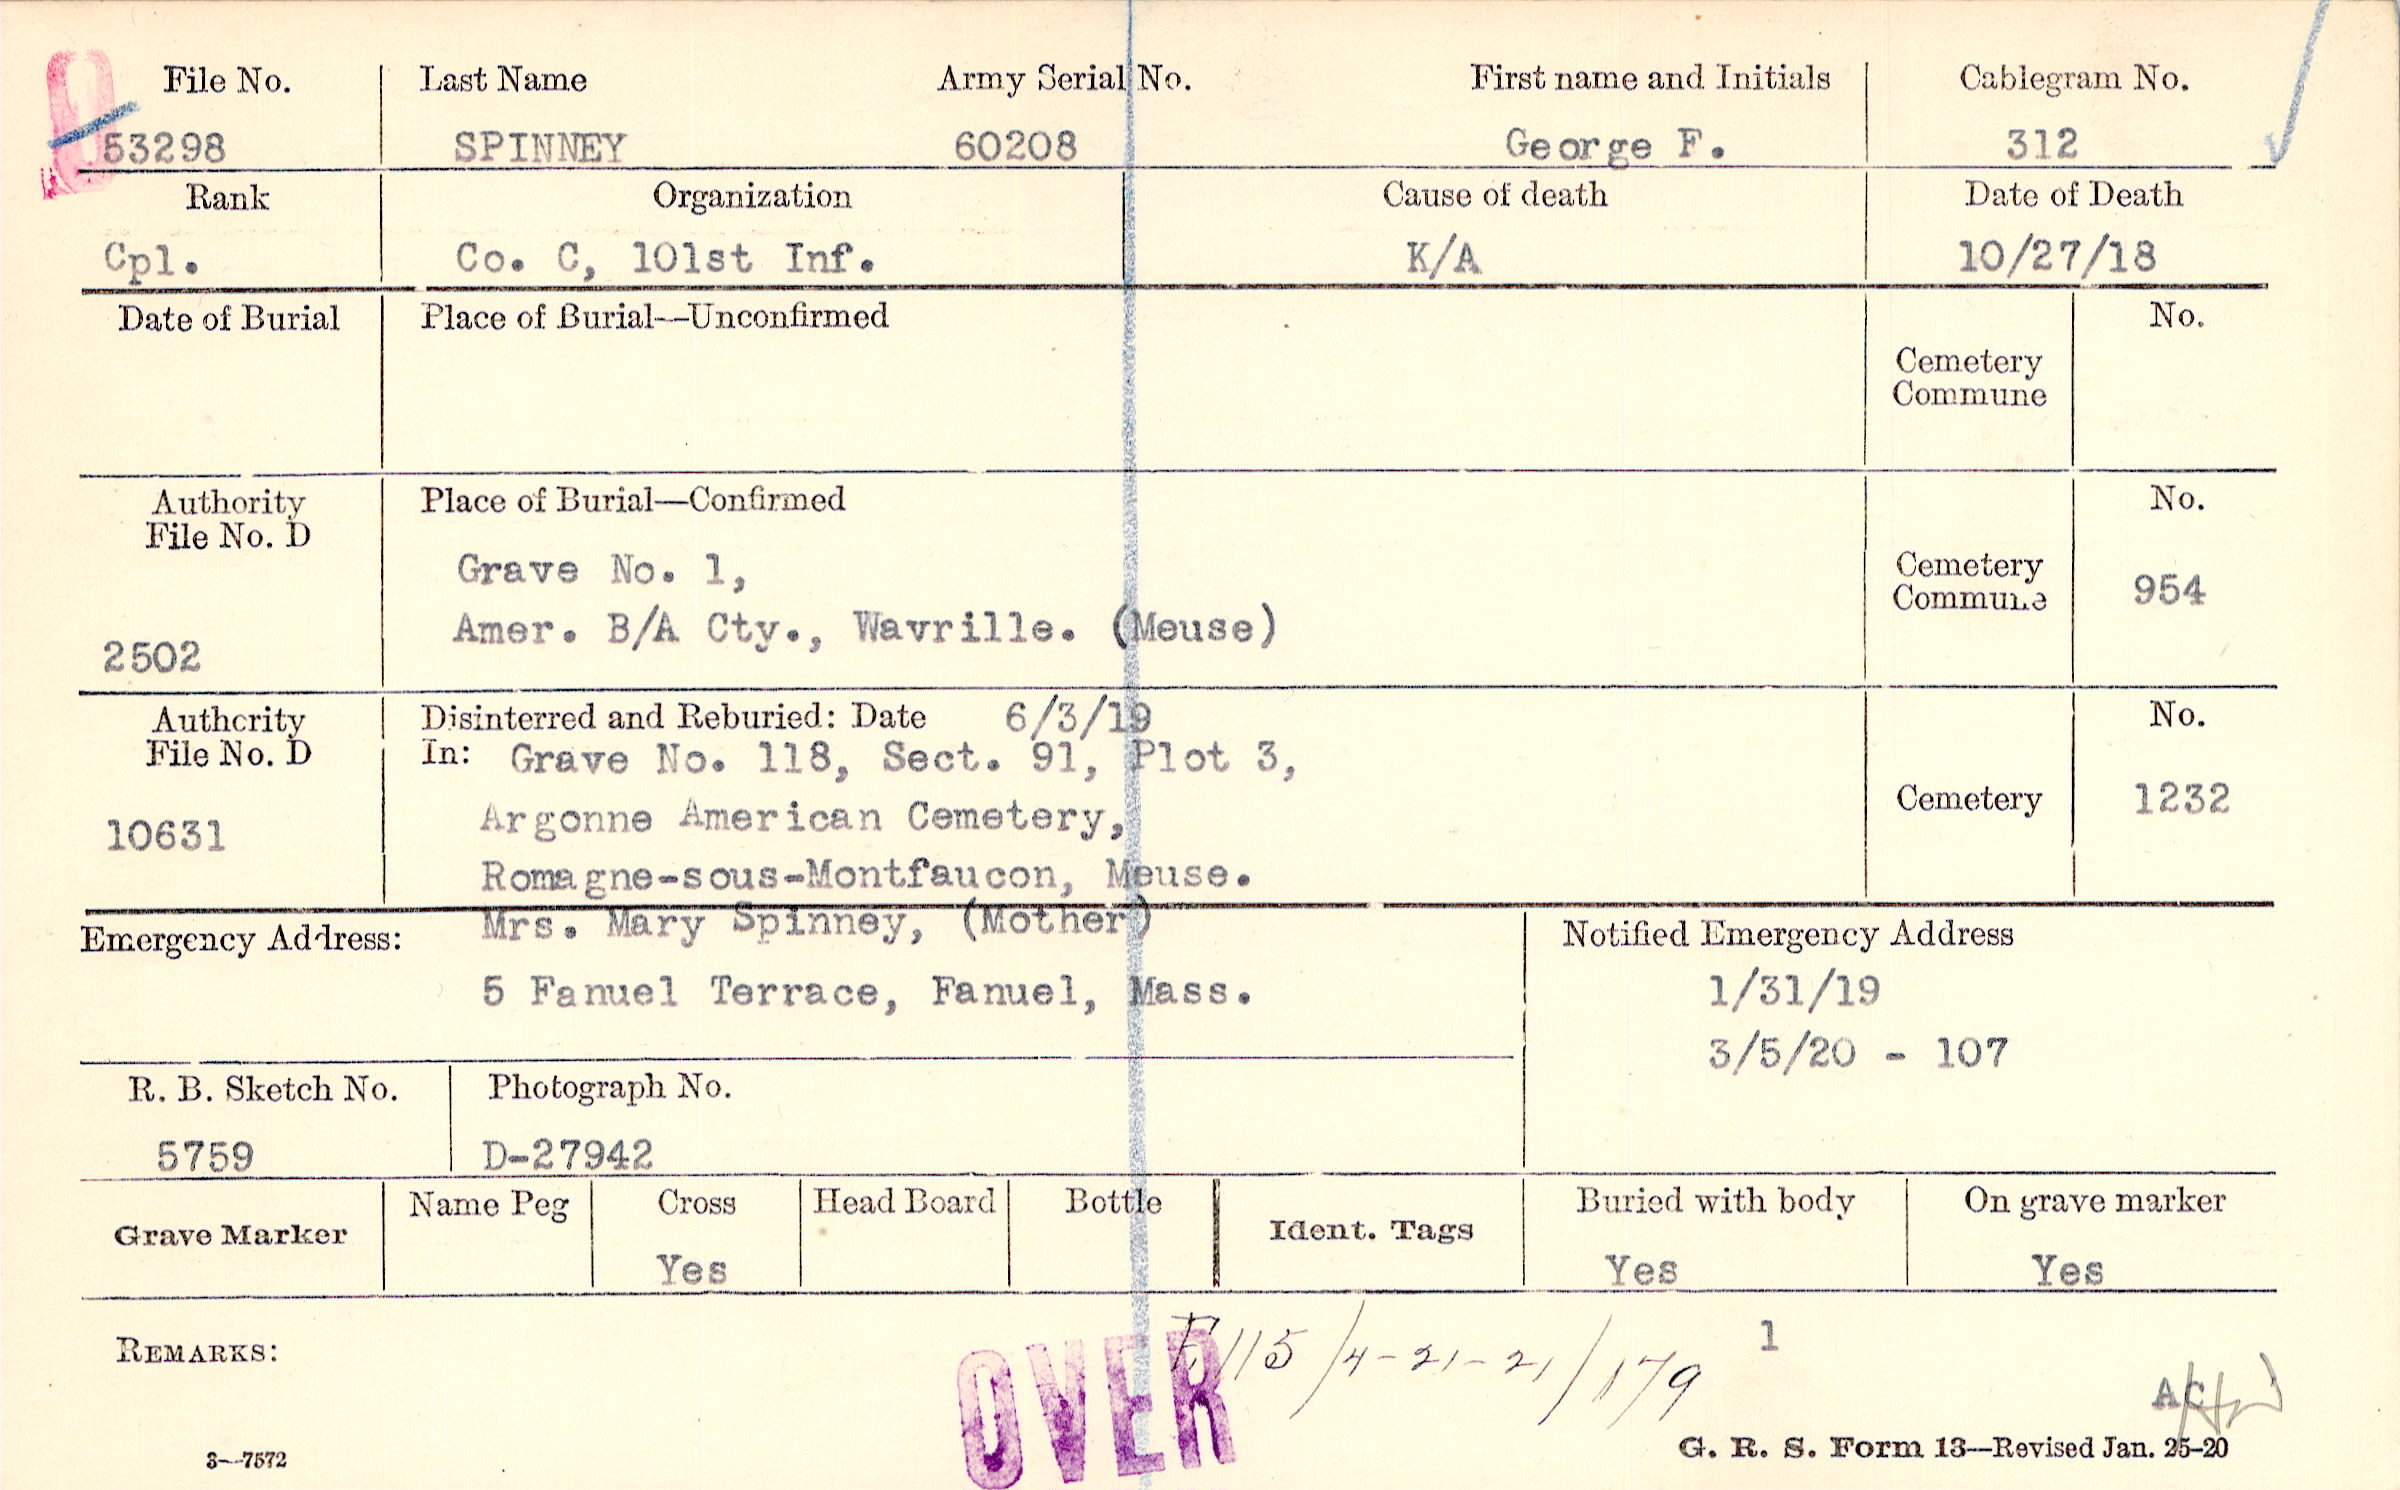 File No. Last Name Army Serial No. First name and Initials Cablegram No.
53298 SPINNEY 60208 George F. 312
Rank Organization Cause of death Date of Death
Cpl. Co. C, 101st Inf. K/A 10/27/18
Date of Burial Place of Burial—Unconfirmed No.
Cemetery
Commune
Authority Place of Burial—Confirmed No.
File No. D
Grave No. 1, Cemetery
Commune 954
Amer. B/A Cty., Wavrille. (Meuse)
2502
Authority Disinterred and Reburied: Date 6/3/19 No.
File No. D In: Grave No. 118, Sect. 91, Plot 3,
10631 Argonne American Cemetery, Cemetery 1232
Romagne-sous-Montfaucon, Meuse.
Emergency Address: Mrs. Mary Spinney, (Mother) Notified Emergency Address
5 Fanuel Terrace, Fanuel, Mass. 1/31/19
3/5/20 - 107
R. B. Sketch No. Photograph No.
5759 D-27942
Grave Marker Name Peg Cross Head Board Bottle Ident. Tags Buried with body On grave marker
Yes Yes Yes
REMARKS: OVER E115/4-21-21/179 1
AC
3—7572 G. R. S. Form 13—Revised Jan. 25-20